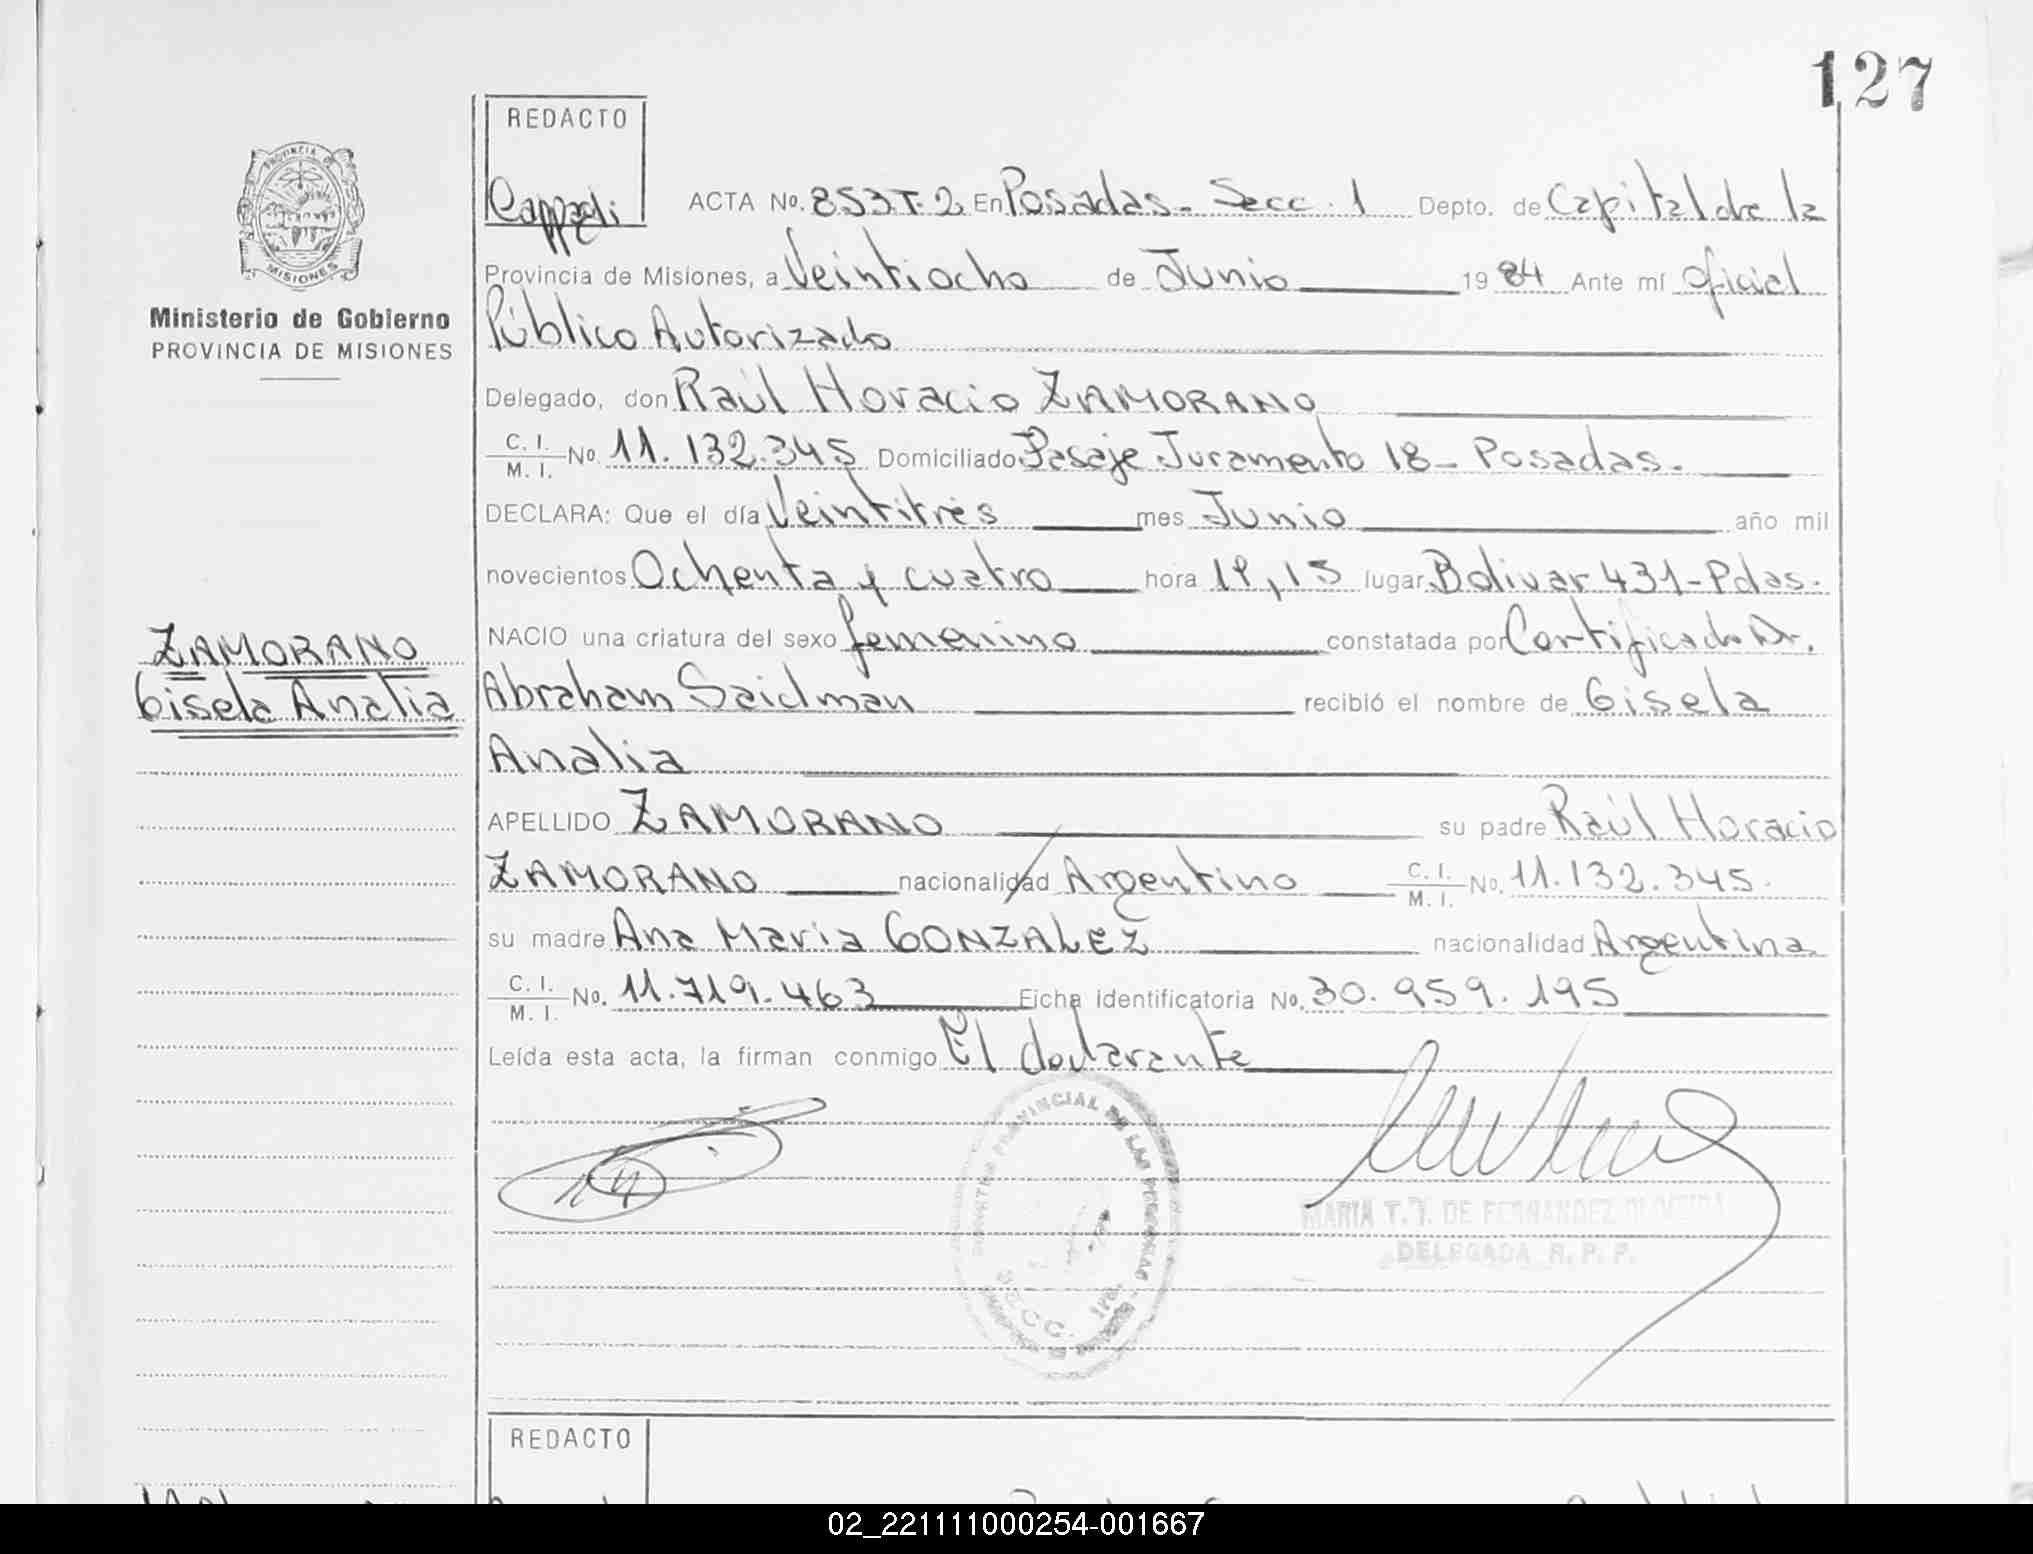 127
REDACTO
Cappelli
ACTA No. 853 T. 2 En Posadas - Secc. 1 Depto. de Capital de la
PROVINCIA DE
MISIONES
Provincia de Misiones, a Veintiocho de Junio 1984 Ante mí Oficial
Ministerio de Gobierno
PROVINCIA DE MISIONES
Público Autorizado
Delegado, don Raúl Horacio ZAMORANO
C. I. / M. I. No. 11.132.345 Domiciliado Pasaje Juramento 18 - Posadas.
DECLARA: Que el día Veintitrés mes Junio año mil
novecientos Ochenta y cuatro hora 19,15 lugar Bolivar 431 - Pdas.
NACIO una criatura del sexo femenino constatada por Certificado Dr.
ZAMORANO
Gisela Analia
Abraham Saidman recibió el nombre de Gisela
Analia
APELLIDO ZAMORANO su padre Raúl Horacio
ZAMORANO nacionalidad Argentino C. I. / M. I. No. 11.132.345.
su madre Ana Maria GONZALEZ nacionalidad Argentina
C. I. / M. I. No. 11.719.463 Ficha identificatoria No. 30.959.195
Leída esta acta, la firman conmigo El declarante
PROVINCIAL DE LAS PERSONAS
SECC. 1ra.
MARIA T. J. DE FERNANDEZ OLIVEIRA
DELEGADA R. P. P.
REDACTO
02_221111000254-001667